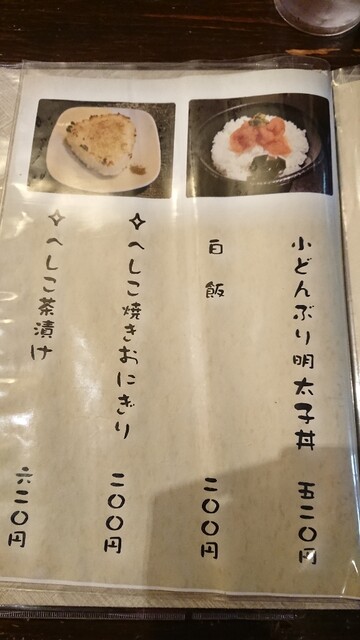 小どんぶり明太子丼 五二〇円
白飯 二〇〇円
✧へしこ焼きおにぎり 二〇〇円
✧へしこ茶漬け 六二〇円